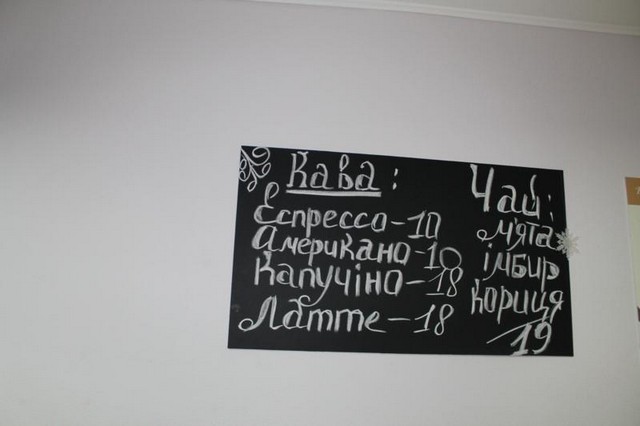 Кава:
Еспрессо-10
Американо-10
Капучіно-18
Латте-18
Чай:
м'ята
імбир
кориця
19